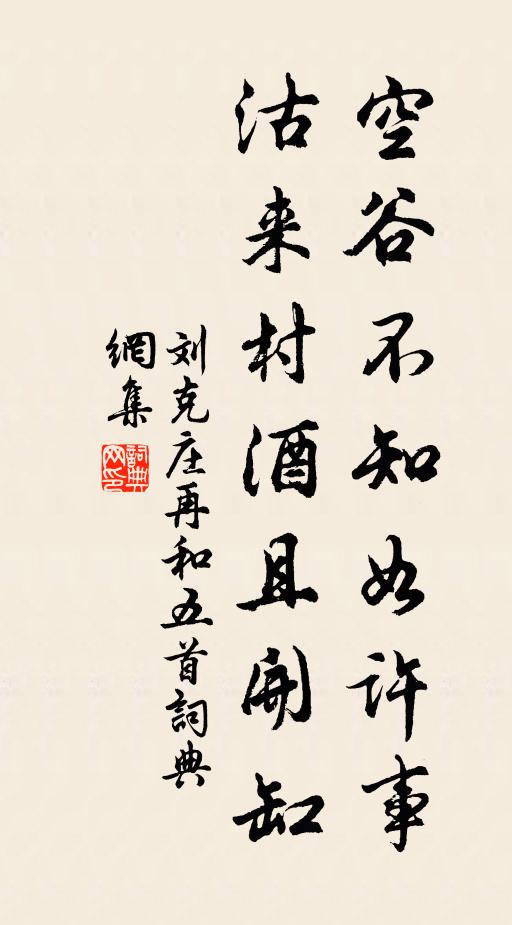 空谷不知如许事
沽来村酒且开缸
刘克庄再和五首詞典
網集
詞典网印